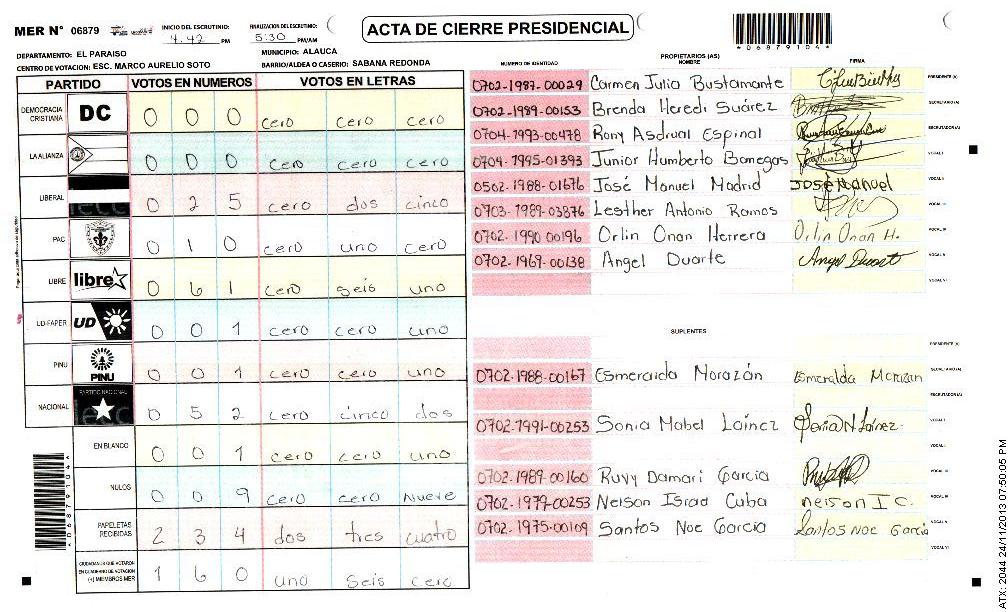 MER N° 06879
INICIO DEL ESCRUTINIO: 4.42 PM
FINALIZACION DEL ESCRUTINIO: 5:30 PM/AM
ACTA DE CIERRE PRESIDENCIAL
*06879104*
DEPARTAMENTO: EL PARAISO
MUNICIPIO: ALAUCA
CENTRO DE VOTACION: ESC. MARCO AURELIO SOTO
BARRIO/ALDEA O CASERIO: SABANA REDONDA
PARTIDO VOTOS EN NUMEROS VOTOS EN LETRAS
DEMOCRACIA CRISTIANA DC 0 0 0 cero cero cero
LA ALIANZA 0 0 0 cero cero cero
LIBERAL 0 2 5 cero dos cinco
PAC 0 1 0 cero uno cero
LIBRE libre 0 6 1 cero seis uno
UD-FAPER UD 0 0 1 cero cero uno
PINU PINU 0 0 1 cero cero uno
NACIONAL PARTIDO NACIONAL 0 5 2 cero cinco dos
EN BLANCO 0 0 1 cero cero uno
NULOS 0 0 9 cero cero nueve
PAPELETAS RECIBIDAS 2 3 4 dos tres cuatro
CIUDADANOS QUE VOTARON EN CUADERNO DE VOTACION (+) MIEMBROS MER 1 6 0 uno seis cero
*06879104*
NUMERO DE IDENTIDAD
PROPIETARIOS (AS)
NOMBRE
FIRMA
0702-1987-00029 Carmen Julia Bustamante PRESIDENTE (A)
0702-1989-00153 Brenda Heredi Suárez SECRETARIO (A)
0704-1993-00478 Rony Asdrual Espinal ESCRUTADOR (A)
0704-1995-01393 Junior Humberto Banegas VOCAL I
0502-1988-01676 José Manuel Madrid José Manuel VOCAL II
0703-1989-03876 Lesther Antonio Ramos VOCAL III
0702-1990-00196 Orlin Onan Herrera Orlin Onan H. VOCAL IV
0702-1969-00138 Angel Duarte Angel Duart VOCAL V
VOCAL VI
SUPLENTES
PRESIDENTE (A)
0702-1988-00167 Esmeralda Morazán Esmeralda Morazan SECRETARIO (A)
ESCRUTADOR (A)
0702-1991-00253 Sonia Mabel Laínez Sonia M Laínez. VOCAL I
VOCAL II
0702-1989-00160 Ruvy Damari Garcia VOCAL III
0702-1979-00253 Nelson Israd Cuba nelson I C. VOCAL IV
0702-1975-00109 Santos Noe Garcia Santos Noe Garcia VOCAL V
VOCAL VI
ATX: 2044 24/11/2013 07:50:05 PM